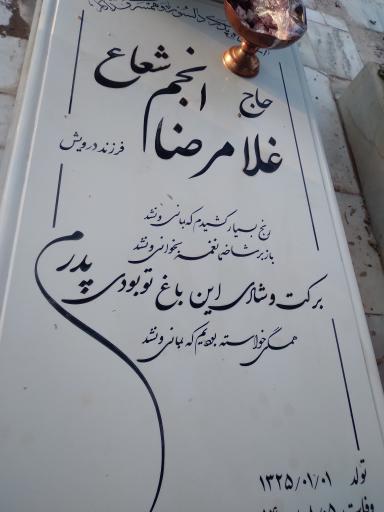 حاج
غلامرضا انجم شعاع
فرزند درویش
رنج بسیار کشیدم که بمانی و نشد
باز بر شاخه نغمه بخوانی و نشد
برکت و شادی این باغ تو بودی پدرم
همگی خواسته بودیم که بمانی و نشد
تولد ۱۳۲۵/۰۱/۰۱
وفات